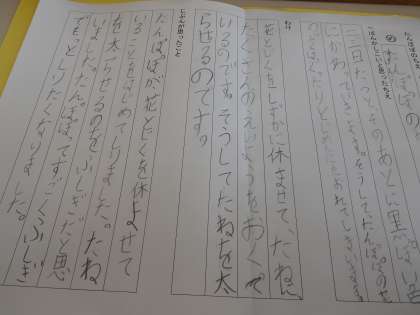 たんぽぽのちえ
三日たつと、そのあとに黒っぽい色
にかわってきます。そうして、たんぽぽの花
のじくは、ぐったりとじめんにたおれてしまいます。
わけ
花とじくをしずかに休ませて、たねに
たくさんのえいようをおくって
いるのです。そうしてたねを太
らせるのです。
じぶんが思ったこと
たんぽぽが花とじくを休ませて
いることをはじめてしりました。たね
を太らせるのをふしぎだと思
いました。たんぽぽってすごくふしぎ
でもっとしりたくなりました。